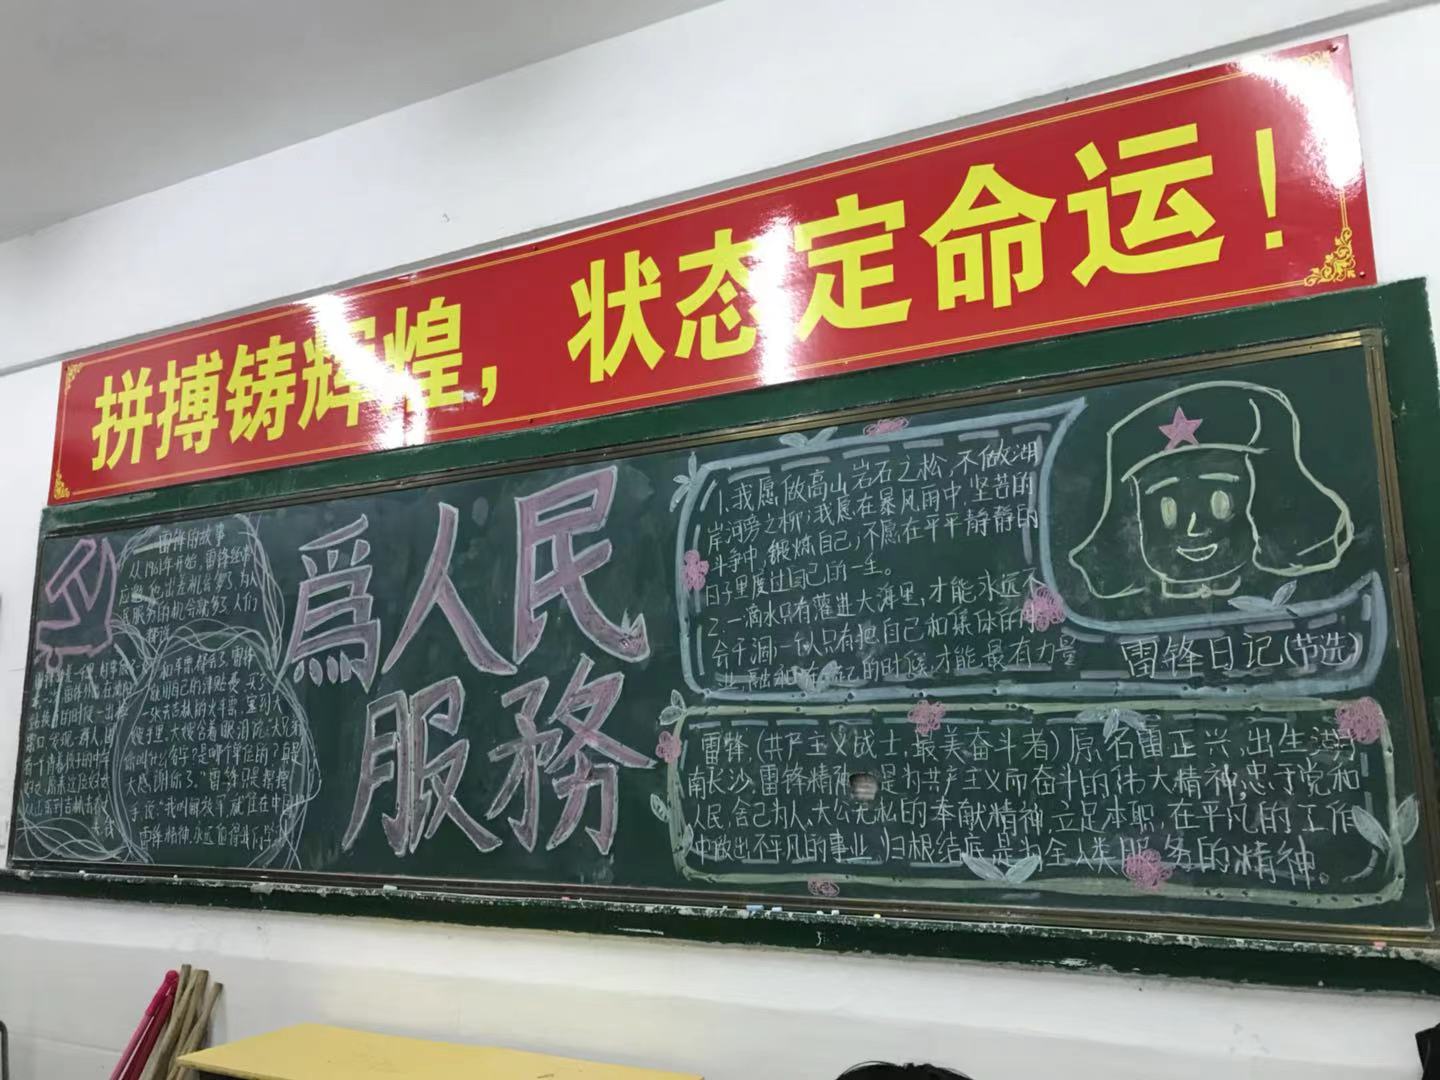 拼搏铸辉煌，状态定命运！
雷锋的故事
从1961年开始，雷锋经常
为人
民服务的机会就多了，人们
爲人民
服務
1.我愿做高山岩石之松，不做湖
岸河旁之柳；我愿在暴风雨中坚苦的
斗争中锻炼自己，不愿在平平静静的
日子里度过自己的一生。
2.一滴水只有落进大海里，才能永远不
会干涸一个人只有把自己和集体的
的时候，才能最有力量
雷锋日记(节选)
雷锋，(共产主义战士，最美奋斗者)原名雷正兴，出生湖
南长沙，雷锋精神，是为共产主义而奋斗的伟大精神；忠于党和
人民，舍己为人、大公无私的奉献精神，立足本职，在平凡的工作
中做出不平凡的事业，归根结底是为全人类服务的精神。
和车票都丢了，雷锋
用自己的津贴费，买了
一张去吉林的火车票，塞到大
嫂手里，大嫂含着眼泪说：“大兄弟
你叫什么名字？是哪个单位的？真是
太感谢你了。”雷锋只是挥挥
手说：“我叫解放军，就住在中国
雷锋精神，永远值得我们学习